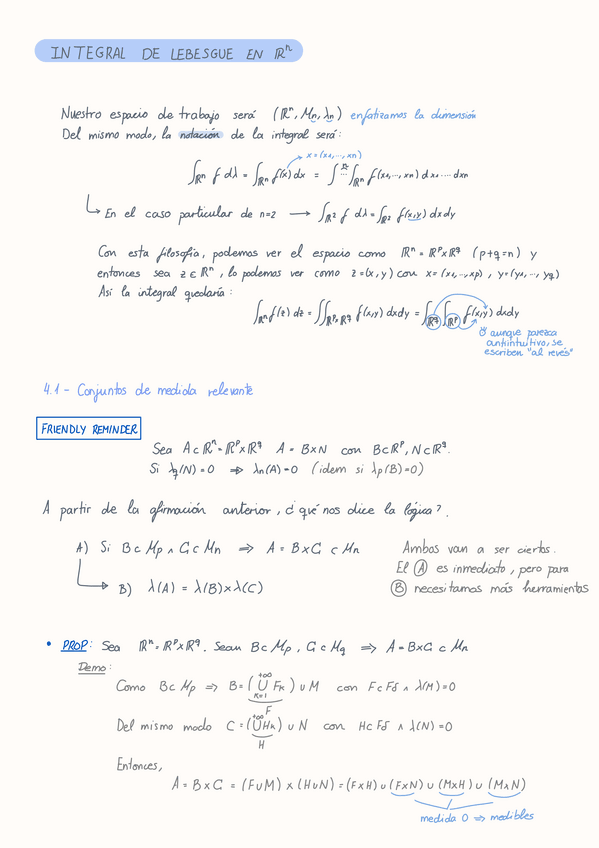 INTEGRAL DE LEBESGUE EN ℝⁿ
Nuestro espacio de trabajo será (ℝⁿ, Mₙ, λₙ) enfatizamos la dimensión
Del mismo modo, la notación de la integral será:
x=(x₁,...,xn)
∫ℝⁿ f dλ = ∫ℝⁿ f(x) dx = ∫ ⁿ⋯ ∫ℝⁿ f(x₁,...,xn) dx₁....dxn
↳ En el caso particular de n=2 → ∫ℝ² f dλ = ∫ℝ² f(x,y) dxdy
Con esta filosofía, podemos ver el espacio como ℝⁿ = ℝᵖxℝ^q (p+q=n) y
entonces sea z∈ℝⁿ, lo podemos ver como z=(x,y) con x=(x₁,...,xp), y=(y₁,...,yq)
Así la integral quedaría:
∫ℝⁿ f(z) dz = ∬ℝᵖ×ℝ^q f(x,y) dxdy = ∫ℝ^q ∫ℝᵖ f(x,y) dxdy
aunque parezca
antiintuitivo, se
escriben "al revés"
4.1- Conjuntos de medida relevante
FRIENDLY REMINDER
Sea A⊂ℝⁿ=ℝᵖxℝ^q A=BxN con B⊂ℝᵖ, N⊂ℝ^q.
Si λq(N)=0 ⇒ λn(A)=0 (idem si λp(B)=0)
A partir de la afirmación anterior, ¿qué nos dice la lógica?.
A) Si B⊂Mp ∧ C⊂Mn ⇒ A=BxC ⊂ Mn
Ambos van a ser ciertos.
El Ⓐ es inmediato, pero para
B) λ(A) = λ(B)xλ(C)
Ⓑ necesitamos más herramientas
• PROP: Sea ℝⁿ=ℝᵖxℝ^q. Sean B⊂Mp, C⊂Mq ⇒ A=BxC ⊂ Mn
Demo:
Como B⊂Mp ⇒ B=(⋃_{k=1}^{+∞} Fk) ∪ M con F⊂Fδ ∧ λ(M)=0
F
Del mismo modo C=(⋃^{+∞} Hk) ∪ N con H⊂Fδ ∧ λ(N)=0
H
Entonces,
A=BxC = (F∪M) x (H∪N) = (FxH) ∪ (FxN) ∪ (MxH) ∪ (MxN)
medida 0 ⇒ medibles